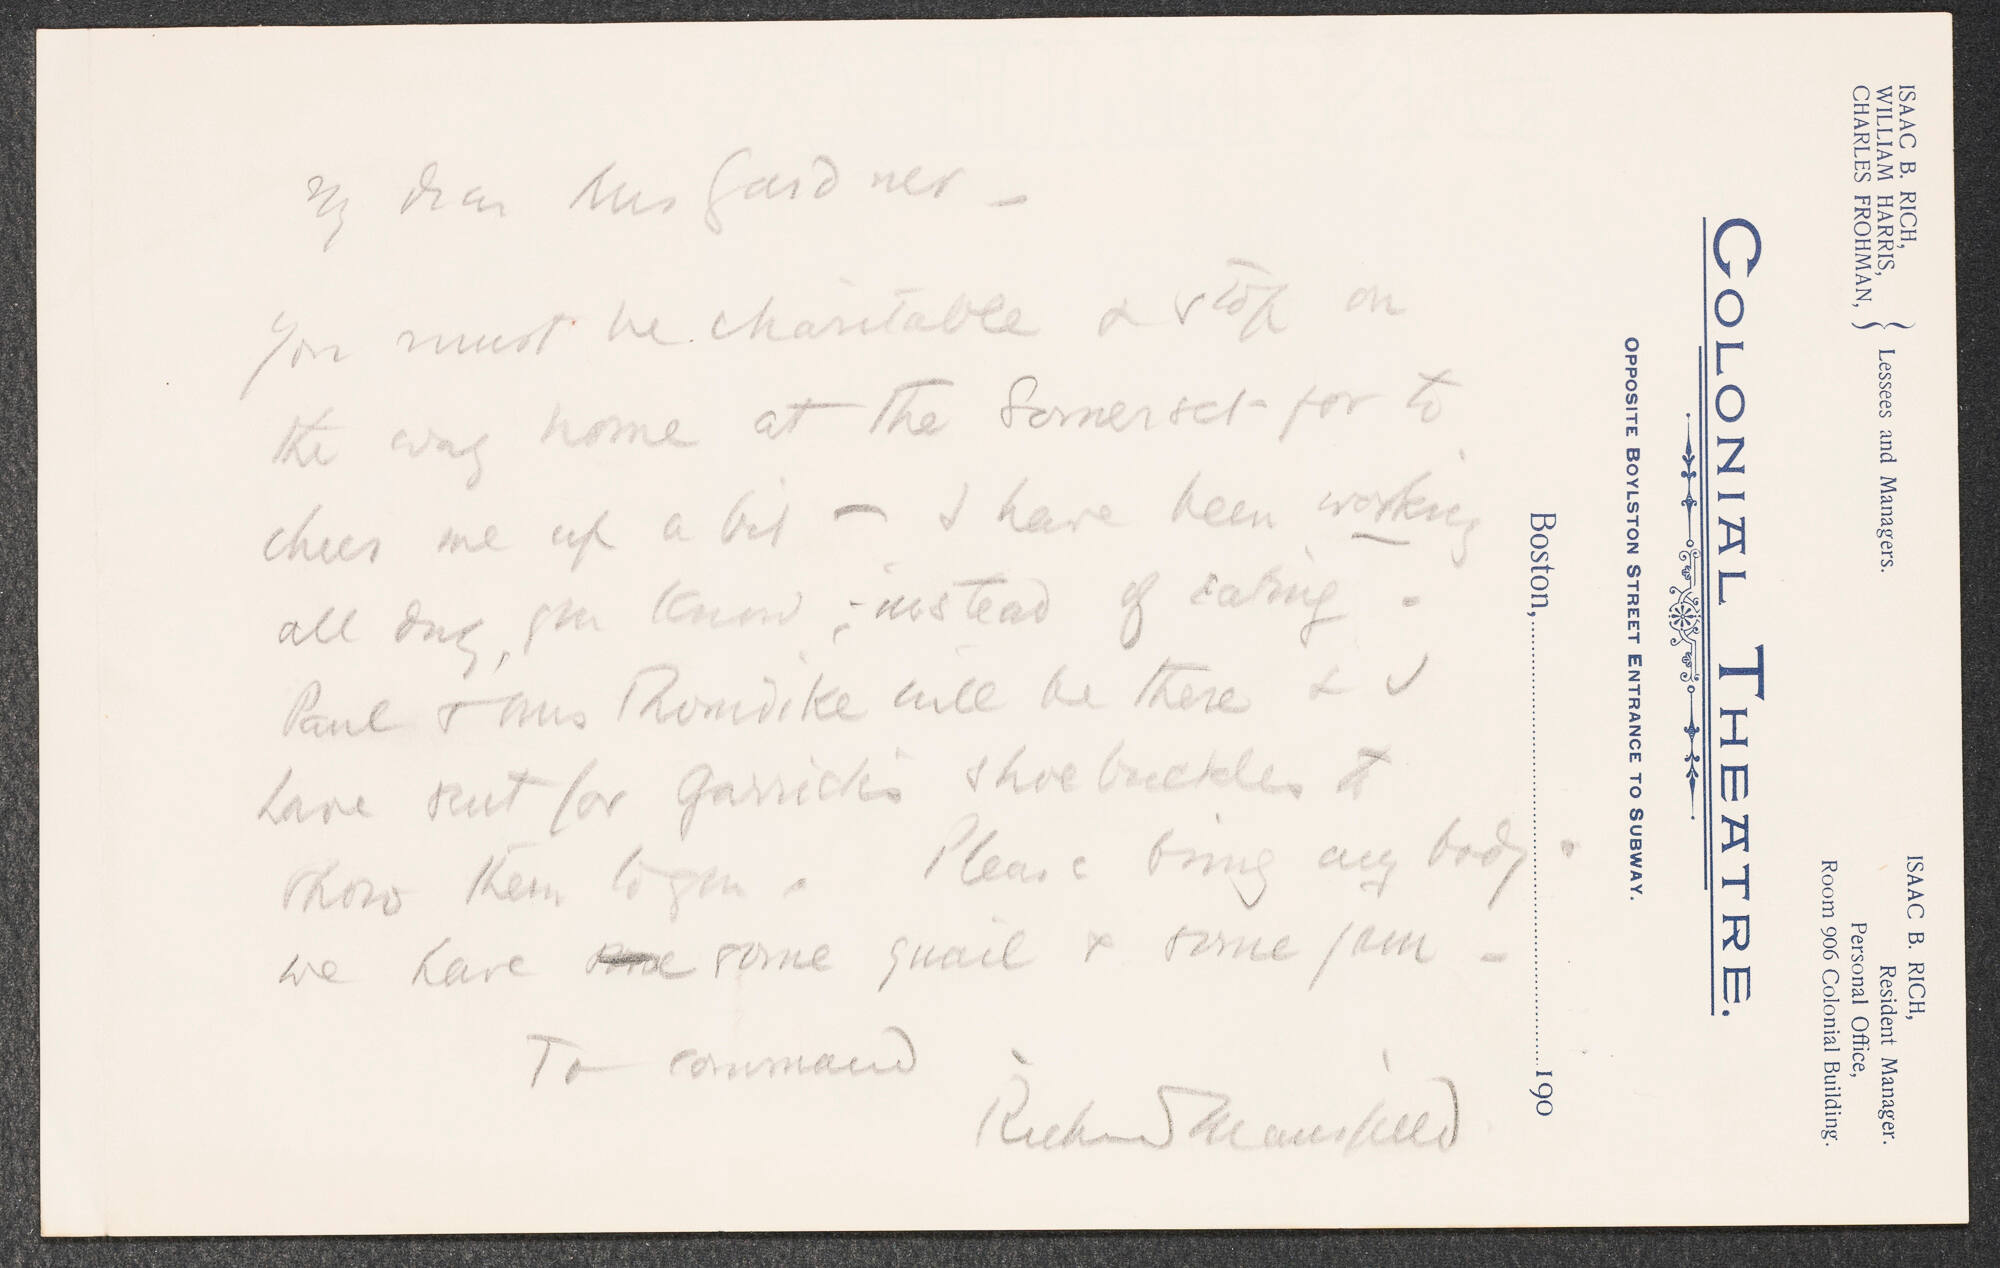 ISAAC B. RICH,
WILLIAM HARRIS,
CHARLES FROHMAN,
} Lessees and Managers.
ISAAC B. RICH,
Resident Manager.
Personal Office,
Room 906 Colonial Building.
COLONIAL THEATRE.
OPPOSITE BOYLSTON STREET ENTRANCE TO SUBWAY.
Boston, 190
My dear Mrs Gardner -
You must be charitable & stop on
the way home at the Somerset - for to
cheer me up a bit - I have been working
all day, you know, - instead of eating.
Paul & Mrs Thorndike will be there & I
have sent for Garrick's shoebuckles to
show them to you. Please bring any body.
we have some some quail & some jam -
To command
Richard Mansfield